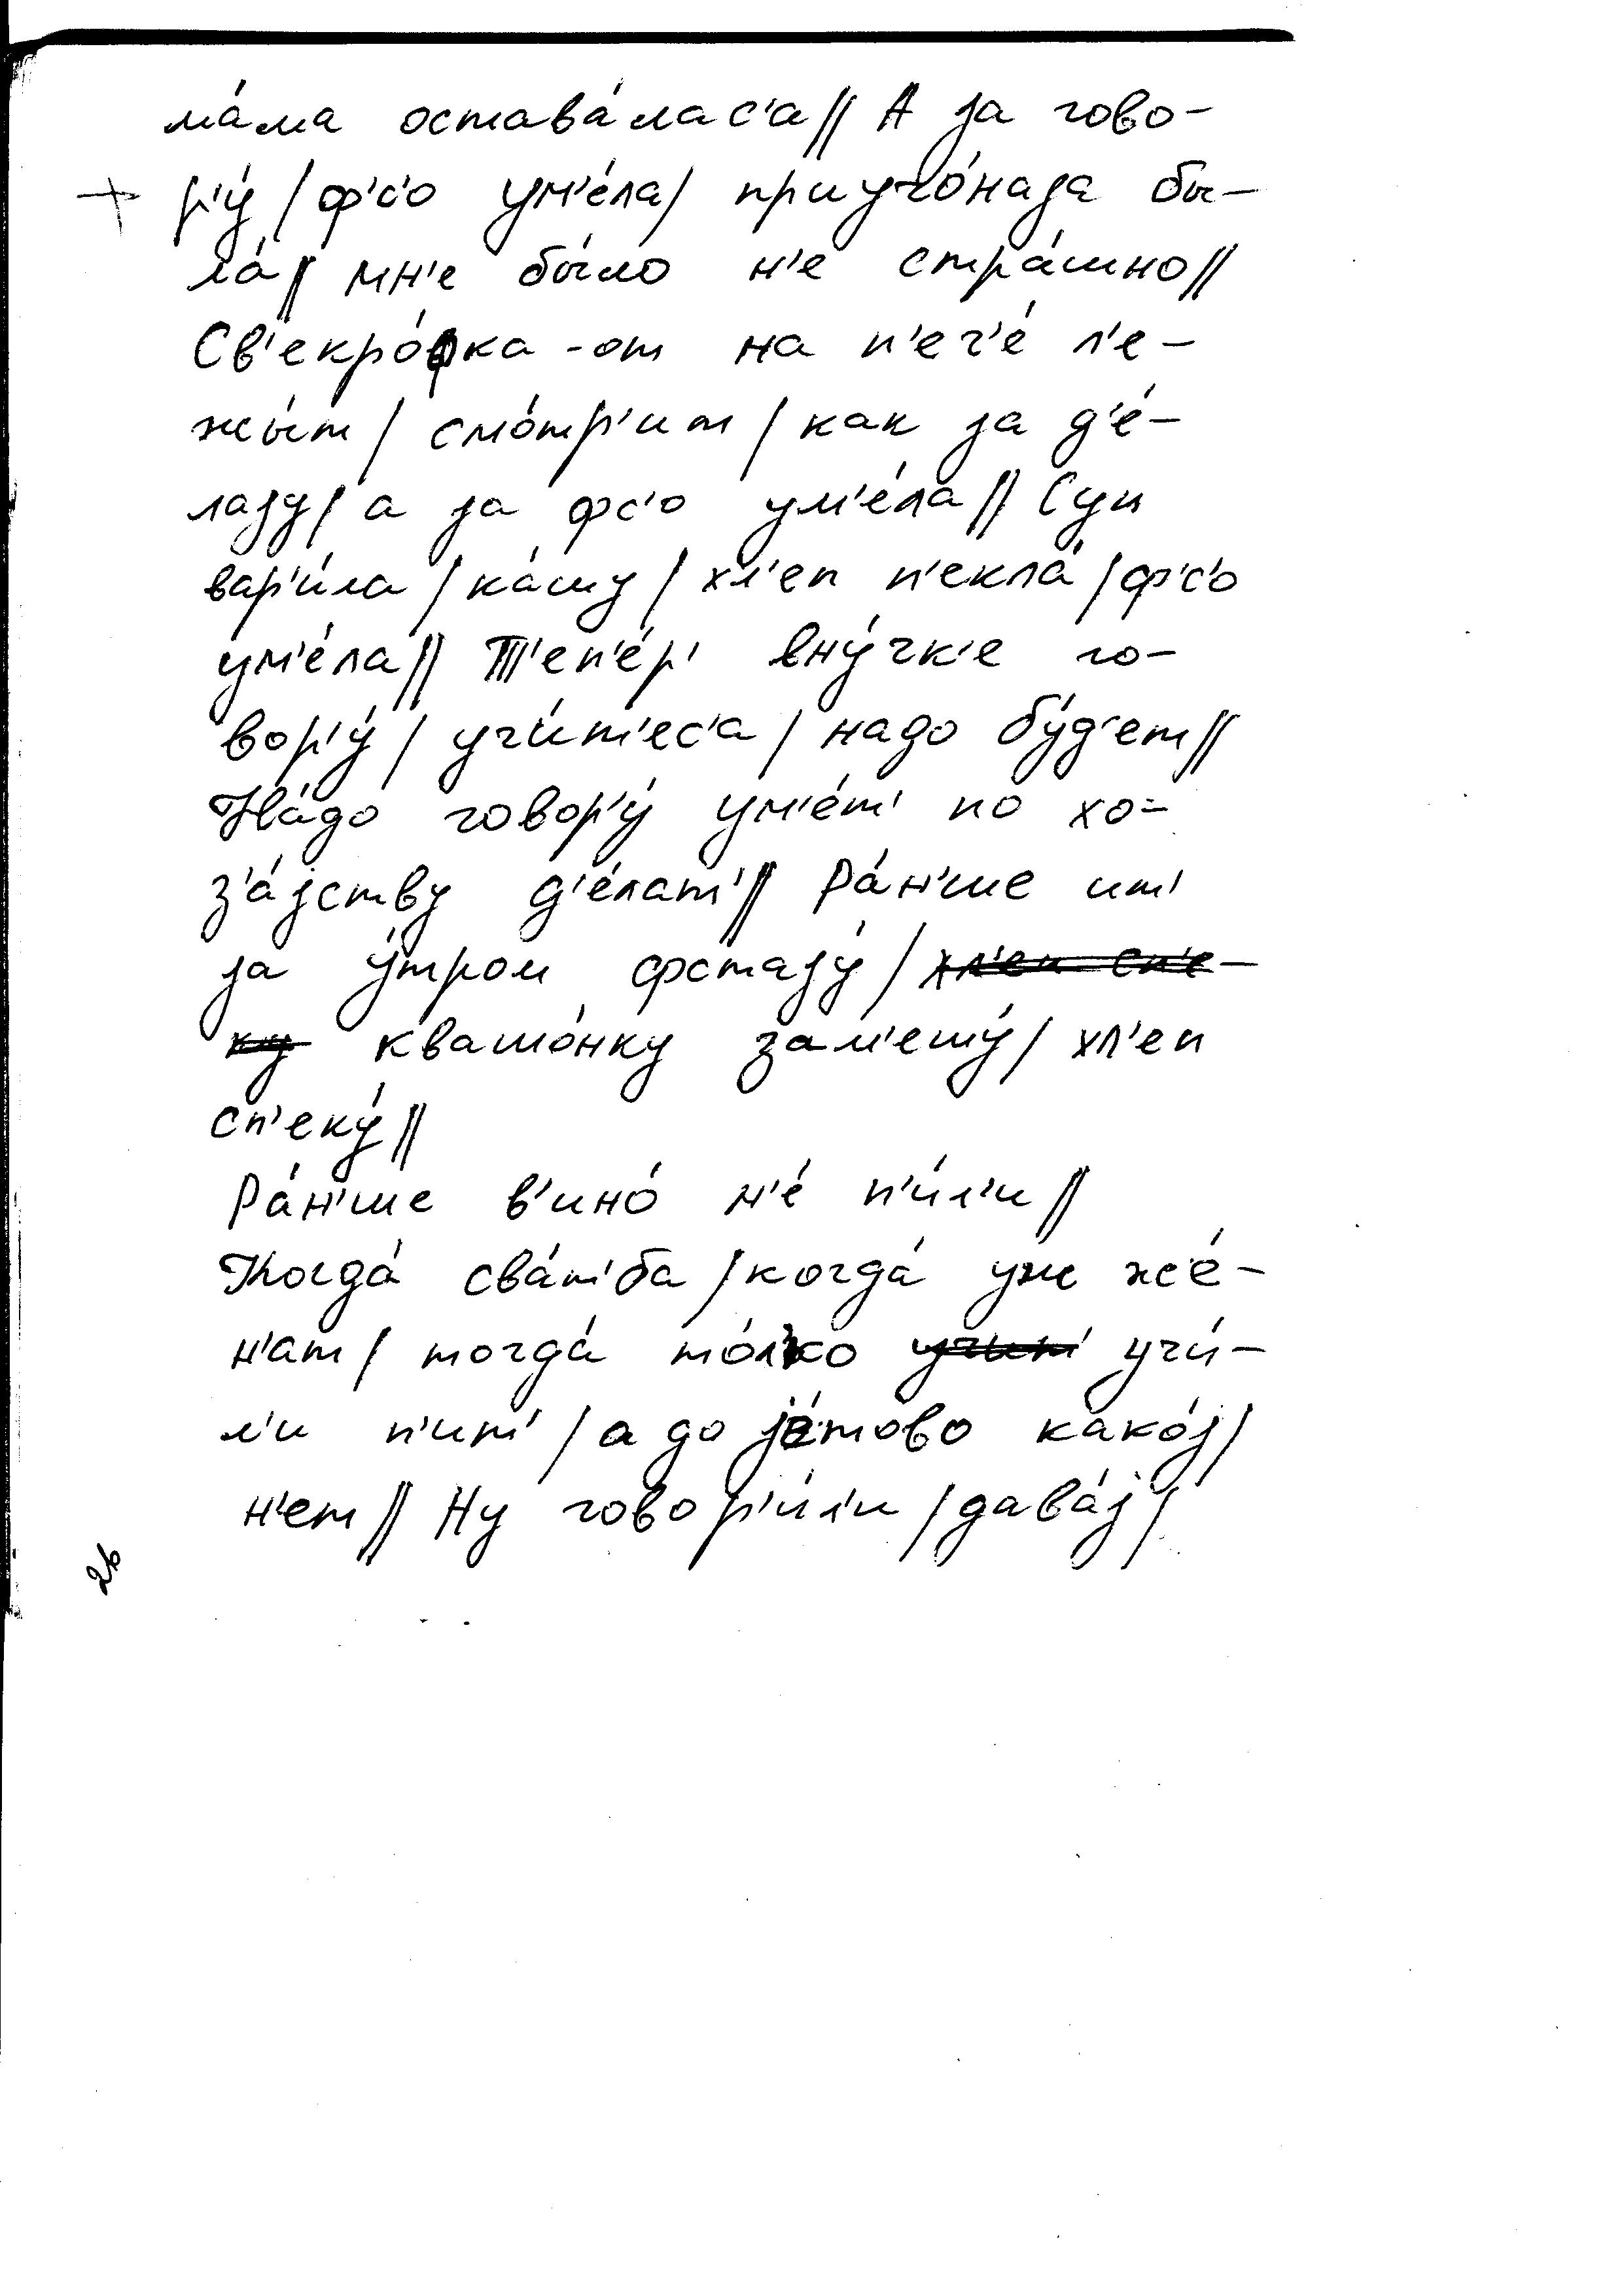 ма́ма остава́лас'а // А jа гово-
+ р'у́ / ф'с'о ум'е́ла / приучо́наjа бы-
ла́ // мн'е бы́ло н'е стра́шно //
Св'екро́фка -от на п'еч'е́ л'е-
жы́т / смо́тр'ит / как jа д'е́-
лаjу / а jа фс'о ум'е́ла // Суп
вар'и́ла / ка́шу / хл'еп п'екла́ / ф'с'о
ум'е́ла // Т'еп'е́р' вну́чк'е го-
вор'у́ / учи́т'ес'а / надо бу́д'ет //
На́до говор'у́ ум'е́т' по хо-
з'а́jству д'е́лат' // Ра́н'ше ит'
jа у́тром фстаjу́ / хл'еп сп'е-
ку квашо́нку зам'ешу́ / хл'еп
сп'еку́ //
Ра́н'ше в'ино́ н'е́ п'и́л'и //
Когда́ сва́т'ба / когда́ уж же́-
н'ат / тогда́ то́л'ко учит' учи́-
л'и п'ит' / а до jе́тово како́j /
н'ет // Ну говор'и́л'и / дава́j /
26